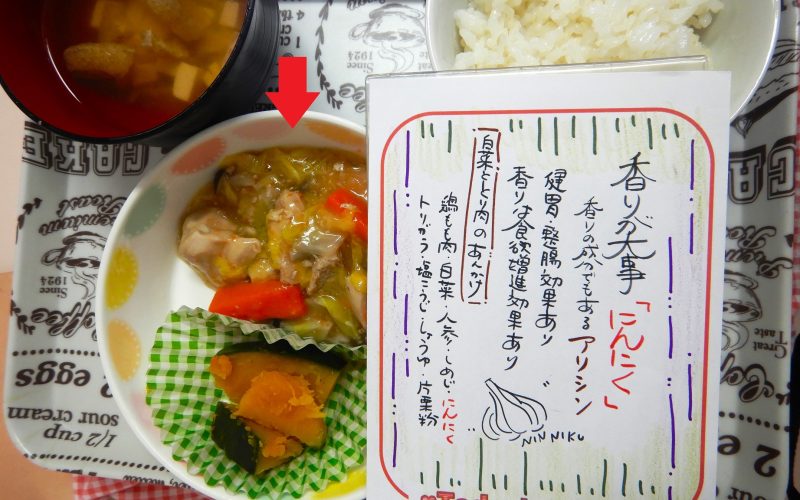 香りが大事
「にんにく」
香りの成分でもあるアリシン
健胃・整腸効果あり
香りは食欲増進効果あり
白菜ととり肉のあんかけ
鶏もも肉・白菜・人参・しめじ・にんにく
トリガラ・塩こうじ・しょうゆ・片栗粉
NINNIKU
CAKE
Premium
Roast
Since
1924
Coffee
2 eggs
sour cream
1/2 cup
Great
Taste